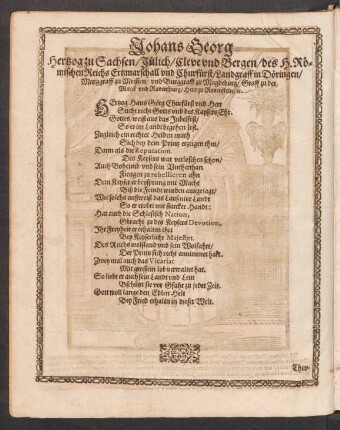 Johans Georg
Hertzog zu Sachsen / Jülich / Cleve vnd Bergen / des H. Rö-
mischen Reichs Ertzmarschall vnd Churfürst / Landgraff in Döringen /
Marggraff zu Meissen / vnd Burggraff zu Magdeburg / Graff zu der
Marck vnd Ravensburg / Herr zu Ravenstein.
HErtzog Hans Görg Churfürst vnd Herr
Sucht recht Gotts vnd des Keysers Ehr.
Gottes, weist aus das Jubelfest /
So er im Land begehen lest.
Zugleich ein rechter Helden muth
Sich bey dem Printz erzeigen thut /
Dann als die Reputation
Des Keysers war verloschen schon /
Auch Böheimb vnd sein
Fiengen zu rebellieren ahn
Dem Keyser er besprung mit Macht
Biß die Feindt wurden ausgejagt /
Wie solchs außweist das Laußnitz Landt
So er erobet mit starcker Handt:
Hat auch die Schlesisch Nation,
Gebracht zu des Keysers Devotion,
Ihr Freyheit er erhalten thet
Bey Keyserliche Majestet.
Des Reichs wolstand vnd sein Wolfahrt /
Der Printz sich recht annimmet hart.
Zwey mal auch das Vicariat
Mit grossem lob verwaltet hat.
So liebt er auch sein Landt vnd Leut
Beschützt sie vor Gfahr zu jeder Zeit.
Gott woll lange den Edlen Helt
Bey Fried erhalten in dieser Welt.
Chur-